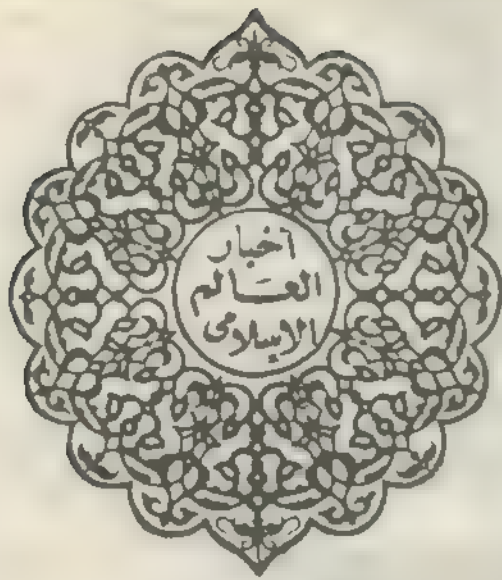 أخبار
العالم
الإسلامي